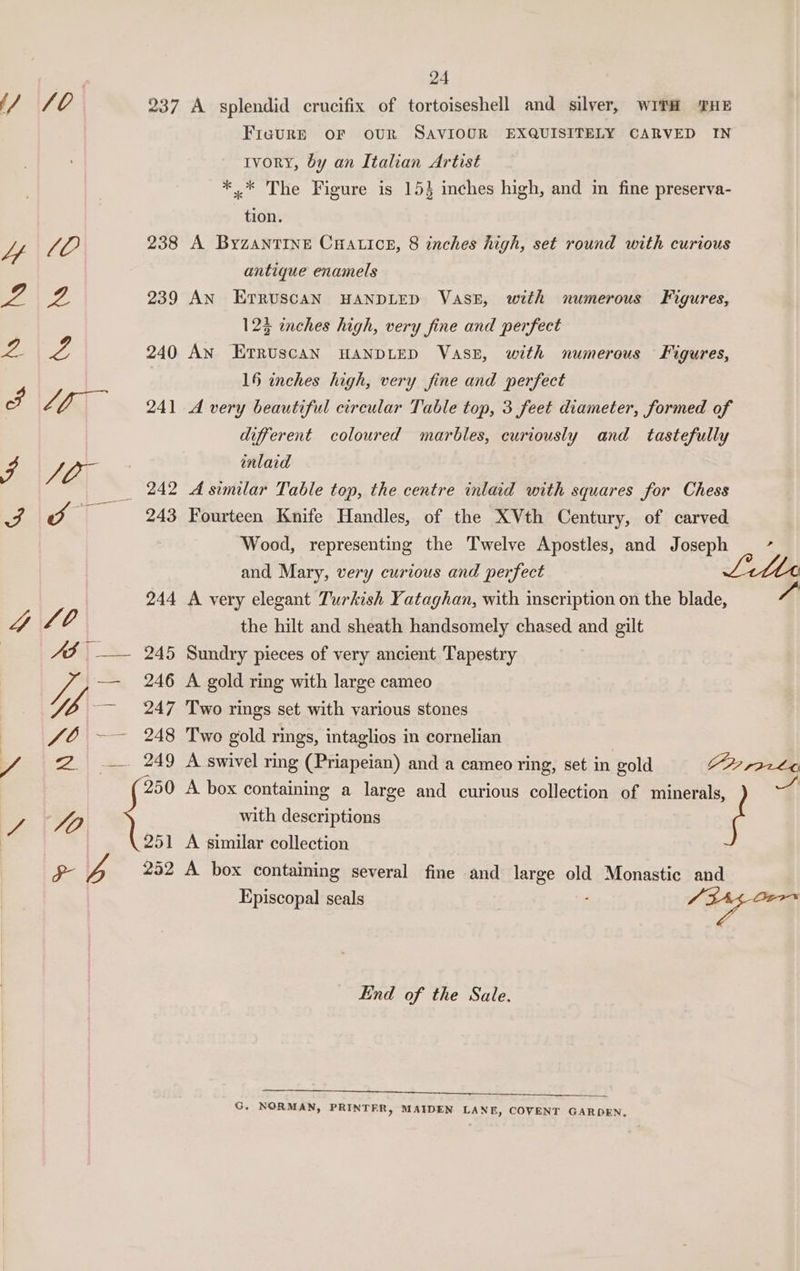 24
10 237 A splendid crucifix of tortoiseshell and silver, WITH THE
FIGURE OF OUR SAVIOUR EXQUISITELY CARVED IN
IVORY, by an Italian Artist
*⁎* The Figure is 15½ inches high, and in fine preserva-
tion.
4 10 238 A BYZANTINE CHALICE, 8 inches high, set round with curious
antique enamels
2 2 239 AN ETRUSCAN HANDLED VASE, with numerous Figures,
12½ inches high, very fine and perfect
2 2 240 AN ETRUSCAN HANDLED VASE, with numerous Figures,
16 inches high, very fine and perfect
3 10 — 241 A very beautiful circular Table top, 3 feet diameter, formed of
different coloured marbles, curiously and tastefully
inlaid
3 10 — 242 A similar Table top, the centre inlaid with squares for Chess
3 5 — 243 Fourteen Knife Handles, of the XVth Century, of carved
Wood, representing the Twelve Apostles, and Joseph
and Mary, very curious and perfect
244 A very elegant Turkish Yataghan, with inscription on the blade,
4 10 the hilt and sheath handsomely chased and gilt
15 — 245 Sundry pieces of very ancient Tapestry
7 — 246 A gold ring with large cameo
16 — 247 Two rings set with various stones
10 — 248 Two gold rings, intaglios in cornelian
1 2 — 249 A swivel ring (Priapeian) and a cameo ring, set in gold
250 A box containing a large and curious collection of minerals,
1 10 with descriptions
251 A similar collection
6 252 A box containing several fine and large old Monastic and
Episcopal seals
End of the Sale.
G. NORMAN, PRINTER, MAIDEN LANE, COVENT GARDEN.